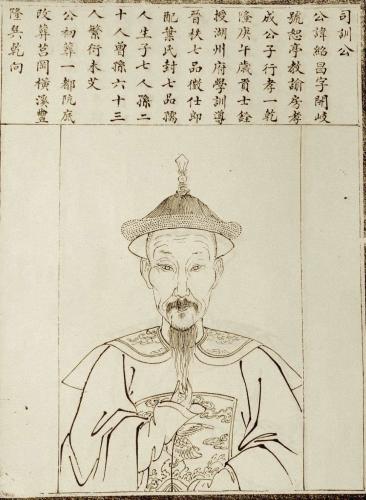 司訓公
公諱紹昌子開岐
號恕亭教諭房孝
成公子行孝一乾
隆庚午歲貢士銓
授湖州府學訓導
晉秩七品徵仕郎
配葉氏封七品孺
人生子七人孫二
十人曾孫六十三
人繁衍未艾
公初葬一都阮底
改葬莒岡橫溪豐
隆巽乾向